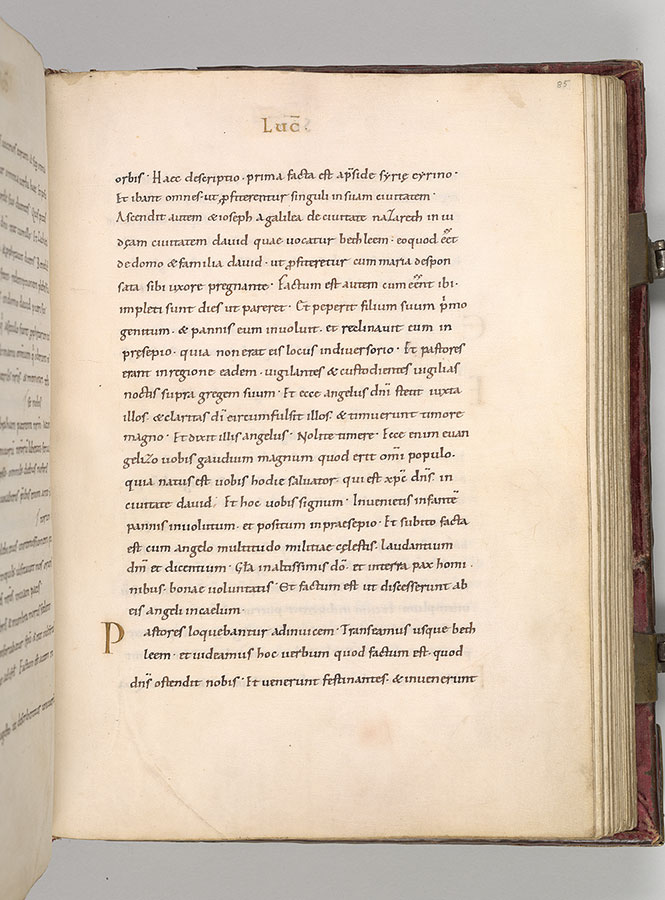 85
Lucͨ
orbis · Haec descriptio · prima facta est ap̄side syrię cyrino ·
Et ibant omnes · ut ꝓfiterentur singuli in suam ciuitatem ·
Ascendit autem & ioseph a galilea de ciuitate nazareth in iu
dęam ciuitatem dauid quae uocatur bethleem · eo quod eēt
de domo & familia dauid · ut ꝓfiteretur cum maria despon
sata sibi uxore pregnante · Factum est autem cum eēnt ibi ·
impleti sunt dies ut pareret · Et peperit filium suum pͥmo
genitum · & pannis eum inuoluit · et reclinauit eum in
presepio · quia non erat eis locus in diuersorio · Et pastores
erant in regione eadem · uigilantes & custodientes uigilias
noctis supra gregem suum · Et ecce angelus dn̄i stetit iuxta
illos · & claritas dī circumfulsit illos · & timuerunt timore
magno · Et dixit illis angelus · Nolite timere · Ecce enim euan
gelizo uobis gaudium magnum quod erit om̄i populo ·
quia natus est uobis hodie saluator · qui est xp̄c dn̄s · in
ciuitate dauid · Et hoc uobis signum · Inuenietis infantē
pannis inuolutum · et positum in praesepio · Et subito facta
est cum angelo multitudo militiae cęlestis · laudantium
dm̄ et dicentium · Gła in altissimis dō · et in terra pax homi
nibus · bonae uoluntatis · Et factum est ut discesserunt ab
eis angeli in caelum ·
Pastores loquebantur adinuicem · Transeamus usque beth
leem · et uideamus hoc uerbum quod factum est · quod
dn̄s ostendit nobis · Et uenerunt festinantes · & inuenerunt